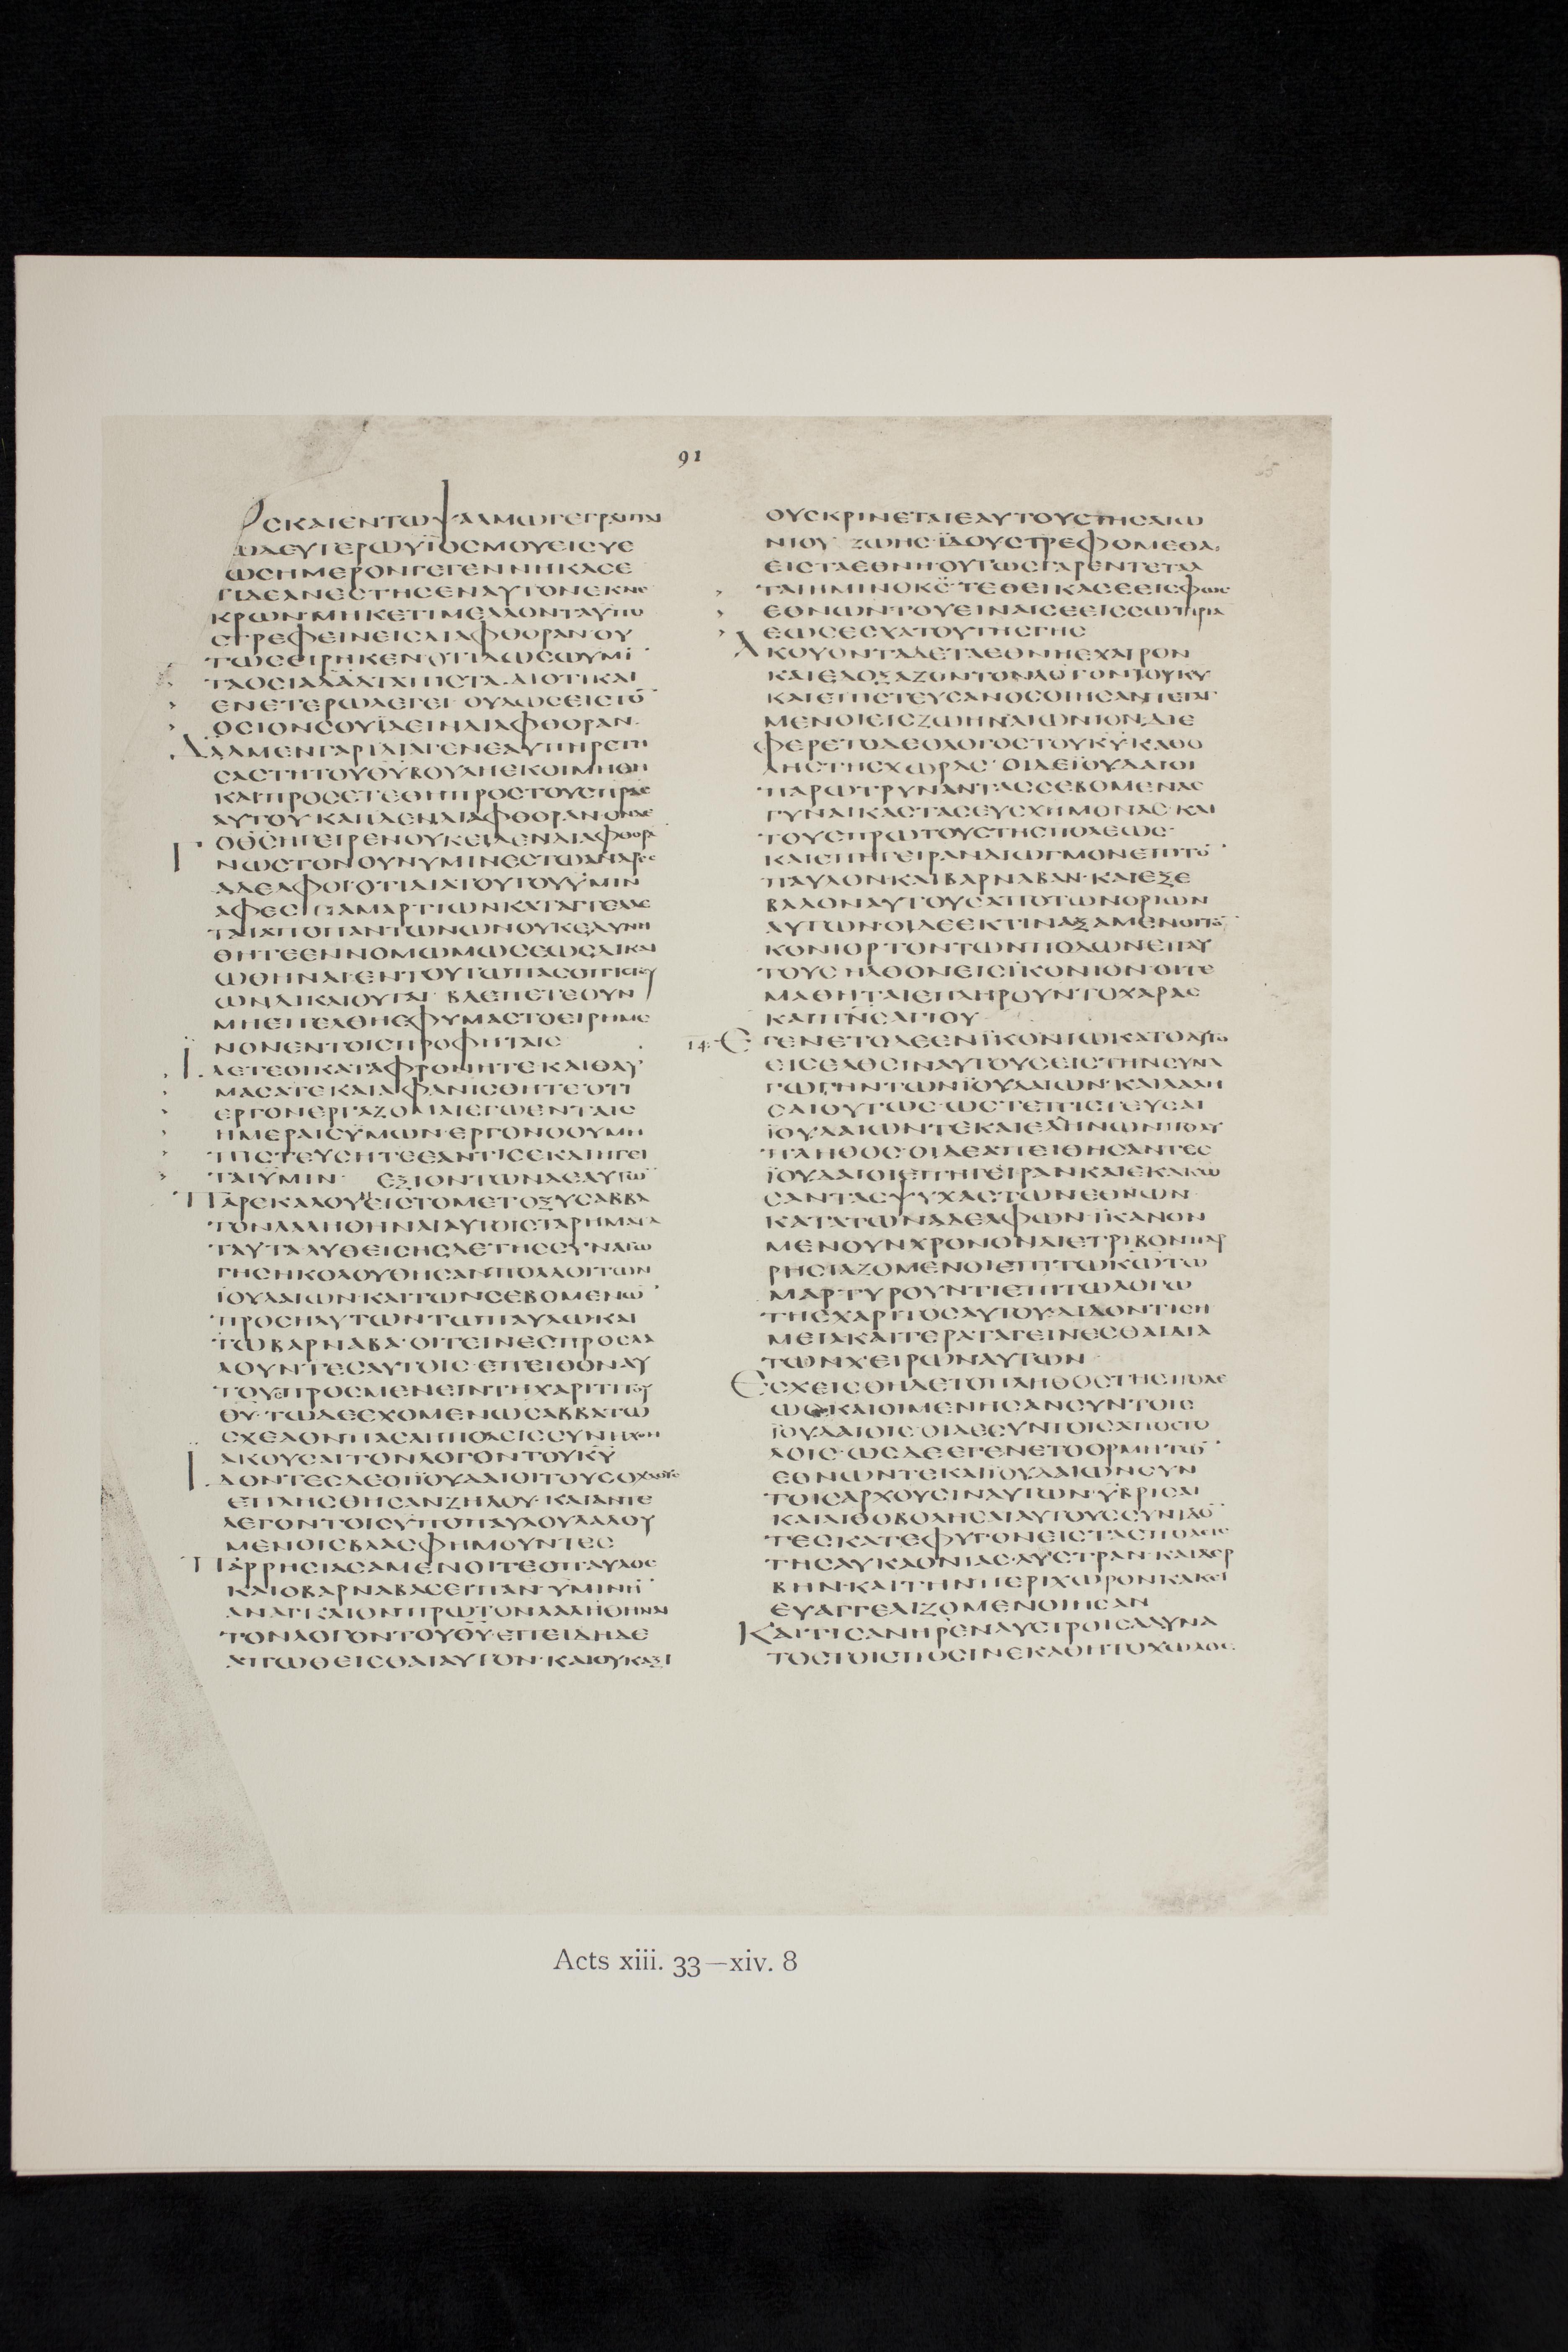 91
ΩϹΚΑΙΕΝΤΩΨΑΛΜΩΓΕΓΡΑΠΤΑΙ
ΤΩΔΕΥΤΕΡΩΥΪΟϹΜΟΥΕΙϹΥΕ
ΓΩϹΗΜΕΡΟΝΓΕΓΕΝΝΗΚΑϹΕ
ΟΤΙΔΕΑΝΕϹΤΗϹΕΝΑΥΤΟΝΕΚΝΕ
ΚΡΩΝ·ΜΗΚΕΤΙΜΕΛΛΟΝΤΑΥΠΟ
ϹΤΡΕΦΕΙΝΕΙϹΔΙΑΦΘΟΡΑΝ·ΟΥ
ΤΩϹΕΙΡΗΚΕΝΟΤΙΔΩϹΩΥΜΙ̅
ΤΑΟϹΙΑΔΑΔΤΑΠΙϹΤΑ·ΔΙΟΤΙΚΑΙ
ΕΝΕΤΕΡΩΛΕΓΕΙ·ΟΥΔΩϹΕΙϹΤΟ̅
ΟϹΙΟΝϹΟΥΪΔΕΙΝΔΙΑΦΘΟΡΑΝ·
ΔΑΔΜΕΝΓΑΡΙΔΙΑΓΕΝΕΑΥΠΗΡΕΤΗ
ϹΑϹΤΗΤΟΥΘ̅Υ̅ΒΟΥΛΗΕΚΟΙΜΗΘΗ
ΚΑΙΠΡΟϹΕΤΕΘΗΠΡΟϹΤΟΥϹΠΡΑϹ
ΑΥΤΟΥΚΑΙΙΔΕΝΔΙΑΦΘΟΡΑΝ·ΟΝΔΕ
ΟΘ̅Ϲ̅ΗΓΕΙΡΕΝΟΥΚΕΙΔΕΝΔΙΑΦΘΟΡΑ
ΝΩϹΤΟΝΟΥΝΥΜΙΝΕϹΤΩΑΝΔΡΕϹ
ΑΔΕΛΦΟΙΟΤΙΔΙΑΤΟΥΤΟΥΫΜΙΝ
ΑΦΕϹΙϹΑΜΑΡΤΙΩΝΚΑΤΑΓΓΕΛΛΕ
ΤΑΙΑΠΟΠΑΝΤΩΝΩΝΟΥΚΕΔΥΝΗ
ΘΗΤΕΕΝΝΟΜΩΜΩϹΕΩϹΔΙΚΑΙ
ΩΘΗΝΑΙΕΝΤΟΥΤΩΠΑϹΟΠΙϹΤΕΥ
ΩΝΔΙΚΑΙΟΥΤΑΙ ΒΛΕΠΕΤΕΟΥΝ
ΜΗΕΠΕΛΘΗΕΦΥΜΑϹΤΟΕΙΡΗΜΕ
ΝΟΝΕΝΤΟΙϹΠΡΟΦΗΤΑΙϹ
ΙΔΕΤΕΟΙΚΑΤΑΦΡΟΝΗΤΕΚΑΙΘΑΥ
ΜΑϹΑΤΕΚΑΙΑΦΑΝΙϹΘΗΤΕ·ΟΤΙ
ΕΡΓΟΝΕΡΓΑΖΟΜΑΙΕΓΩΕΝΤΑΙϹ
ΗΜΕΡΑΙϹΫΜΩΝ·ΕΡΓΟΝΟΟΥΜΗ
ΠΙϹΤΕΥϹΗΤΕΕΑΝΤΙϹΕΚΔΙΗΓΕΙ
ΤΑΙΫΜΙΝ· ΕΞΙΟΝΤΩΝΔΕΑΥΤΩ̅
ΠΑΡΕΚΑΛΟΥΝΕΙϹΤΟΜΕΤΟΞΥϹΑΒΒΑ
ΤΟΝΛΑΛΗΘΗΝΑΙΑΥΤΟΙϹΤΑΡΗΜΑΤΑ
ΤΑΥΤΑ·ΛΥΘΕΙϹΗϹΔΕΤΗϹϹΥΝΑΓΩ
ΓΗϹΗΚΟΛΟΥΘΗϹΑΝΠΟΛΛΟΙΤΩΝ
ΪΟΥΔΑΙΩΝ·ΚΑΙΤΩΝϹΕΒΟΜΕΝΩ̅
ΠΡΟϹΗΛΥΤΩΝΤΩΠΑΥΛΩΚΑΙ
ΤΩΒΑΡΝΑΒΑ·ΟΙΤΕΙΝΕϹΠΡΟϹΛΑ
ΛΟΥΝΤΕϹΑΥΤΟΙϹ·ΕΠΕΙΘΟΝΑΥ
ΤΟΥϹΠΡΟϹΜΕΝΕΙΝΤΗΧΑΡΙΤΙΤΟΥ
Θ̅Υ̅·ΤΩΔΕΕΧΟΜΕΝΩϹΑΒΒΑΤΩ
ϹΧΕΔΟΝΠΑϹΑΗΠΟΛΕΙϹϹΥΝΗΧΘΗ
ΑΚΟΥϹΑΙΤΟΝΛΟΓΟΝΤΟΥΚ̅Υ̅
ΙΔΟΝΤΕϹΔΕΟΙΪΟΥΔΑΙΟΙΤΟΥϹΟΧΛΟΥϹ
ΕΠΛΗϹΘΗϹΑΝΖΗΛΟΥ·ΚΑΙΑΝΤΕ
ΛΕΓΟΝΤΟΙϹΥΠΟΠΑΥΛΟΥΛΑΛΟΥ
ΜΕΝΟΙϹΒΛΑϹΦΗΜΟΥΝΤΕϹ
ΠΑΡΡΗϹΙΑϹΑΜΕΝΟΙΤΕΟΠΑΥΛΟϹ
ΚΑΙΟΒΑΡΝΑΒΑϹΕΙΠΑΝ·ΥΜΙΝΗ̅
ΑΝΑΓΚΑΙΟΝΠΡΩΤΟΝΛΑΛΗΘΗΝΑΙ
ΤΟΝΛΟΓΟΝΤΟΥΘ̅Υ̅·ΕΠΕΙΔΗΔΕ
ΑΠΩΘΕΙϹΘΑΙΑΥΤΟΝ·ΚΑΙΟΥΚΑΞΙ
ΟΥϹΚΡΙΝΕΤΑΙΕΑΥΤΟΥϹΤΗϹΑΙΩ
ΝΙΟΥ ΖΩΗϹ·ΪΔΟΥϹΤΡΕΦΟΜΕΘΑ·
ΕΙϹΤΑΕΘΝΗΟΥΤΩϹΓΑΡΕΝΤΕΤΑΛ
ΤΑΙΗΜΙΝΟΚ̅Ϲ̅·ΤΕΘΕΙΚΑϹΕΕΙϹΦΩϹ
ΕΘΝΩΝΤΟΥΕΙΝΑΙϹΕΕΙϹϹΩΤΗΡΙΑ
ΕΩϹΕϹΧΑΤΟΥΤΗϹΓΗϹ
ΑΚΟΥΟΝΤΑΔΕΤΑΕΘΝΗΕΧΑΙΡΟΝ
ΚΑΙΕΔΟΞΑΖΟΝΤΟΝΛΟΓΟΝΤΟΥΚ̅Υ̅
ΚΑΙΕΠΙϹΤΕΥϹΑΝΟϹΟΙΗϹΑΝΤΕΤΑΓ
ΜΕΝΟΙΕΙϹΖΩΗΝΑΙΩΝΙΟΝ·ΔΙΕ
ΦΕΡΕΤΟΔΕΟΛΟΓΟϹΤΟΥΚ̅Υ̅ΚΑΘΟ
ΛΗϹΤΗϹΧΩΡΑϹ·ΟΙΔΕΪΟΥΔΑΙΟΙ
ΠΑΡΩΤΡΥΝΑΝΤΑϹϹΕΒΟΜΕΝΑϹ
ΓΥΝΑΙΚΑϹΤΑϹΕΥϹΧΗΜΟΝΑϹ·ΚΑΙ
ΤΟΥϹΠΡΩΤΟΥϹΤΗϹΠΟΛΕΩϹ·
ΚΑΙΕΠΗΓΕΙΡΑΝΔΙΩΓΜΟΝΕΠΙΤΟ̅
ΠΑΥΛΟΝ·ΚΑΙΒΑΡΝΑΒΑΝ·ΚΑΙΕΞΕ
ΒΑΛΟΝΑΥΤΟΥϹΑΠΟΤΩΝΟΡΙΩΝ
ΑΥΤΩΝ·ΟΙΔΕΕΚΤΙΝΑΞΑΜΕΝΟΙΤΟ̅
ΚΟΝΙΟΡΤΟΝΤΩΝΠΟΔΩΝΕΠΑΥ
ΤΟΥϹ·ΗΛΘΟΝΕΙϹΪΚΟΝΙΟΝ·ΟΙΤΕ
ΜΑΘΗΤΑΙΕΠΛΗΡΟΥΝΤΟΧΑΡΑϹ
ΚΑΙΠ̅Ν̅Ϲ̅ΑΓΙΟΥ·
14. ΕΓΕΝΕΤΟΔΕΕΝΪΚΟΝΙΩΚΑΤΟΑΥΤΟ
ΕΙϹΕΛΘΕΙΝΑΥΤΟΥϹΕΙϹΤΗΝϹΥΝΑ
ΓΩΓΗΝΤΩΝΪΟΥΔΑΙΩΝ·ΚΑΙΛΑΛΗ
ϹΑΙΟΥΤΩϹ·ΩϹΤΕΠΙϹΤΕΥϹΑΙ
ΪΟΥΔΑΙΩΝΤΕΚΑΙΕΛΛΗΝΩΝΠΟΛΥ
ΠΛΗΘΟϹ·ΟΙΔΕΑΠΕΙΘΗϹΑΝΤΕϹ
ΪΟΥΔΑΙΟΙΕΠΗΓΕΙΡΑΝΚΑΙΕΚΑΚΩ
ϹΑΝΤΑϹΨΥΧΑϹΤΩΝΕΘΝΩΝ·
ΚΑΤΑΤΩΝΑΔΕΛΦΩΝ·ΪΚΑΝΟΝ
ΜΕΝΟΥΝΧΡΟΝΟΝΔΙΕΤΡΙΒΟΝΠΑΡ
ΡΗϹΙΑΖΟΜΕΝΟΙΕΠΙΤΩΚ̅Ω̅ΤΩ
ΜΑΡΤΥΡΟΥΝΤΙΕΠΙΤΩΛΟΓΩ
ΤΗϹΧΑΡΙΤΟϹΑΥΤΟΥ·ΔΙΔΟΝΤΙϹΗ
ΜΕΙΑΚΑΙΤΕΡΑΤΑΓΕΙΝΕϹΘΑΙΔΙΑ
ΤΩΝΧΕΙΡΩΝΑΥΤΩΝ·
ΕϹΧΕΙϹΘΗΔΕΤΟΠΛΗΘΟϹΤΗϹΠΟΛΕ
ΩϹΚΑΙΟΙΜΕΝΗϹΑΝϹΥΝΤΟΙϹ
ΪΟΥΔΑΙΟΙϹ·ΟΙΔΕϹΥΝΤΟΙϹΑΠΟϹΤΟ
ΛΟΙϹ·ΩϹΔΕΕΓΕΝΕΤΟΟΡΜΗΤΩ̅
ΕΘΝΩΝΤΕΚΑΙΪΟΥΔΑΙΩΝϹΥΝ
ΤΟΙϹΑΡΧΟΥϹΙΝΑΥΤΩΝ·ΫΒΡΙϹΑΙ
ΚΑΙΛΙΘΟΒΟΛΗϹΑΙΑΥΤΟΥϹϹΥΝΙΔΟ̅
ΤΕϹΚΑΤΕΦΥΓΟΝΕΙϹΤΑϹΠΟΛΕΙϹ
ΤΗϹΛΥΚΑΟΝΙΑϹ·ΛΥϹΤΡΑΝ·ΚΑΙΔΕΡ
ΒΗΝ·ΚΑΙΤΗΝΠΕΡΙΧΩΡΟΝΚΑΚΕΙ
ΕΥΑΓΓΕΛΙΖΟΜΕΝΟΙΗϹΑΝ
ΚΑΙΤΙϹΑΝΗΡΕΝΛΥϹΤΡΟΙϹΑΔΥΝΑ
ΤΟϹΤΟΙϹΠΟϹΙΝΕΚΑΘΗΤΟΧΩΛΟϹ
Acts xiii. 33—xiv. 8